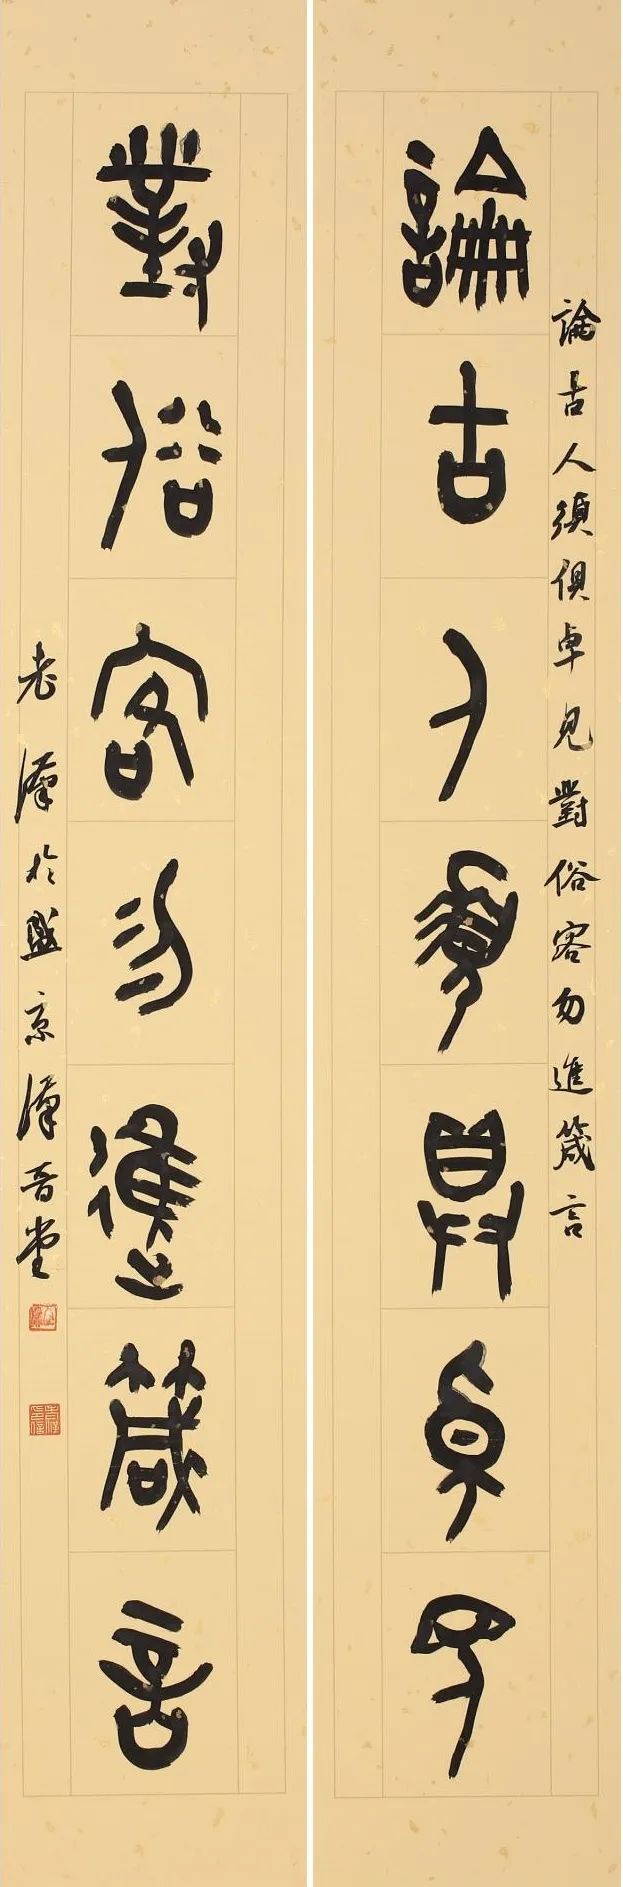 論古人須具卓見
論古人須俱卓見對俗客勿進箴言
對俗客勿進箴言
老濂於盛京濂晉堂